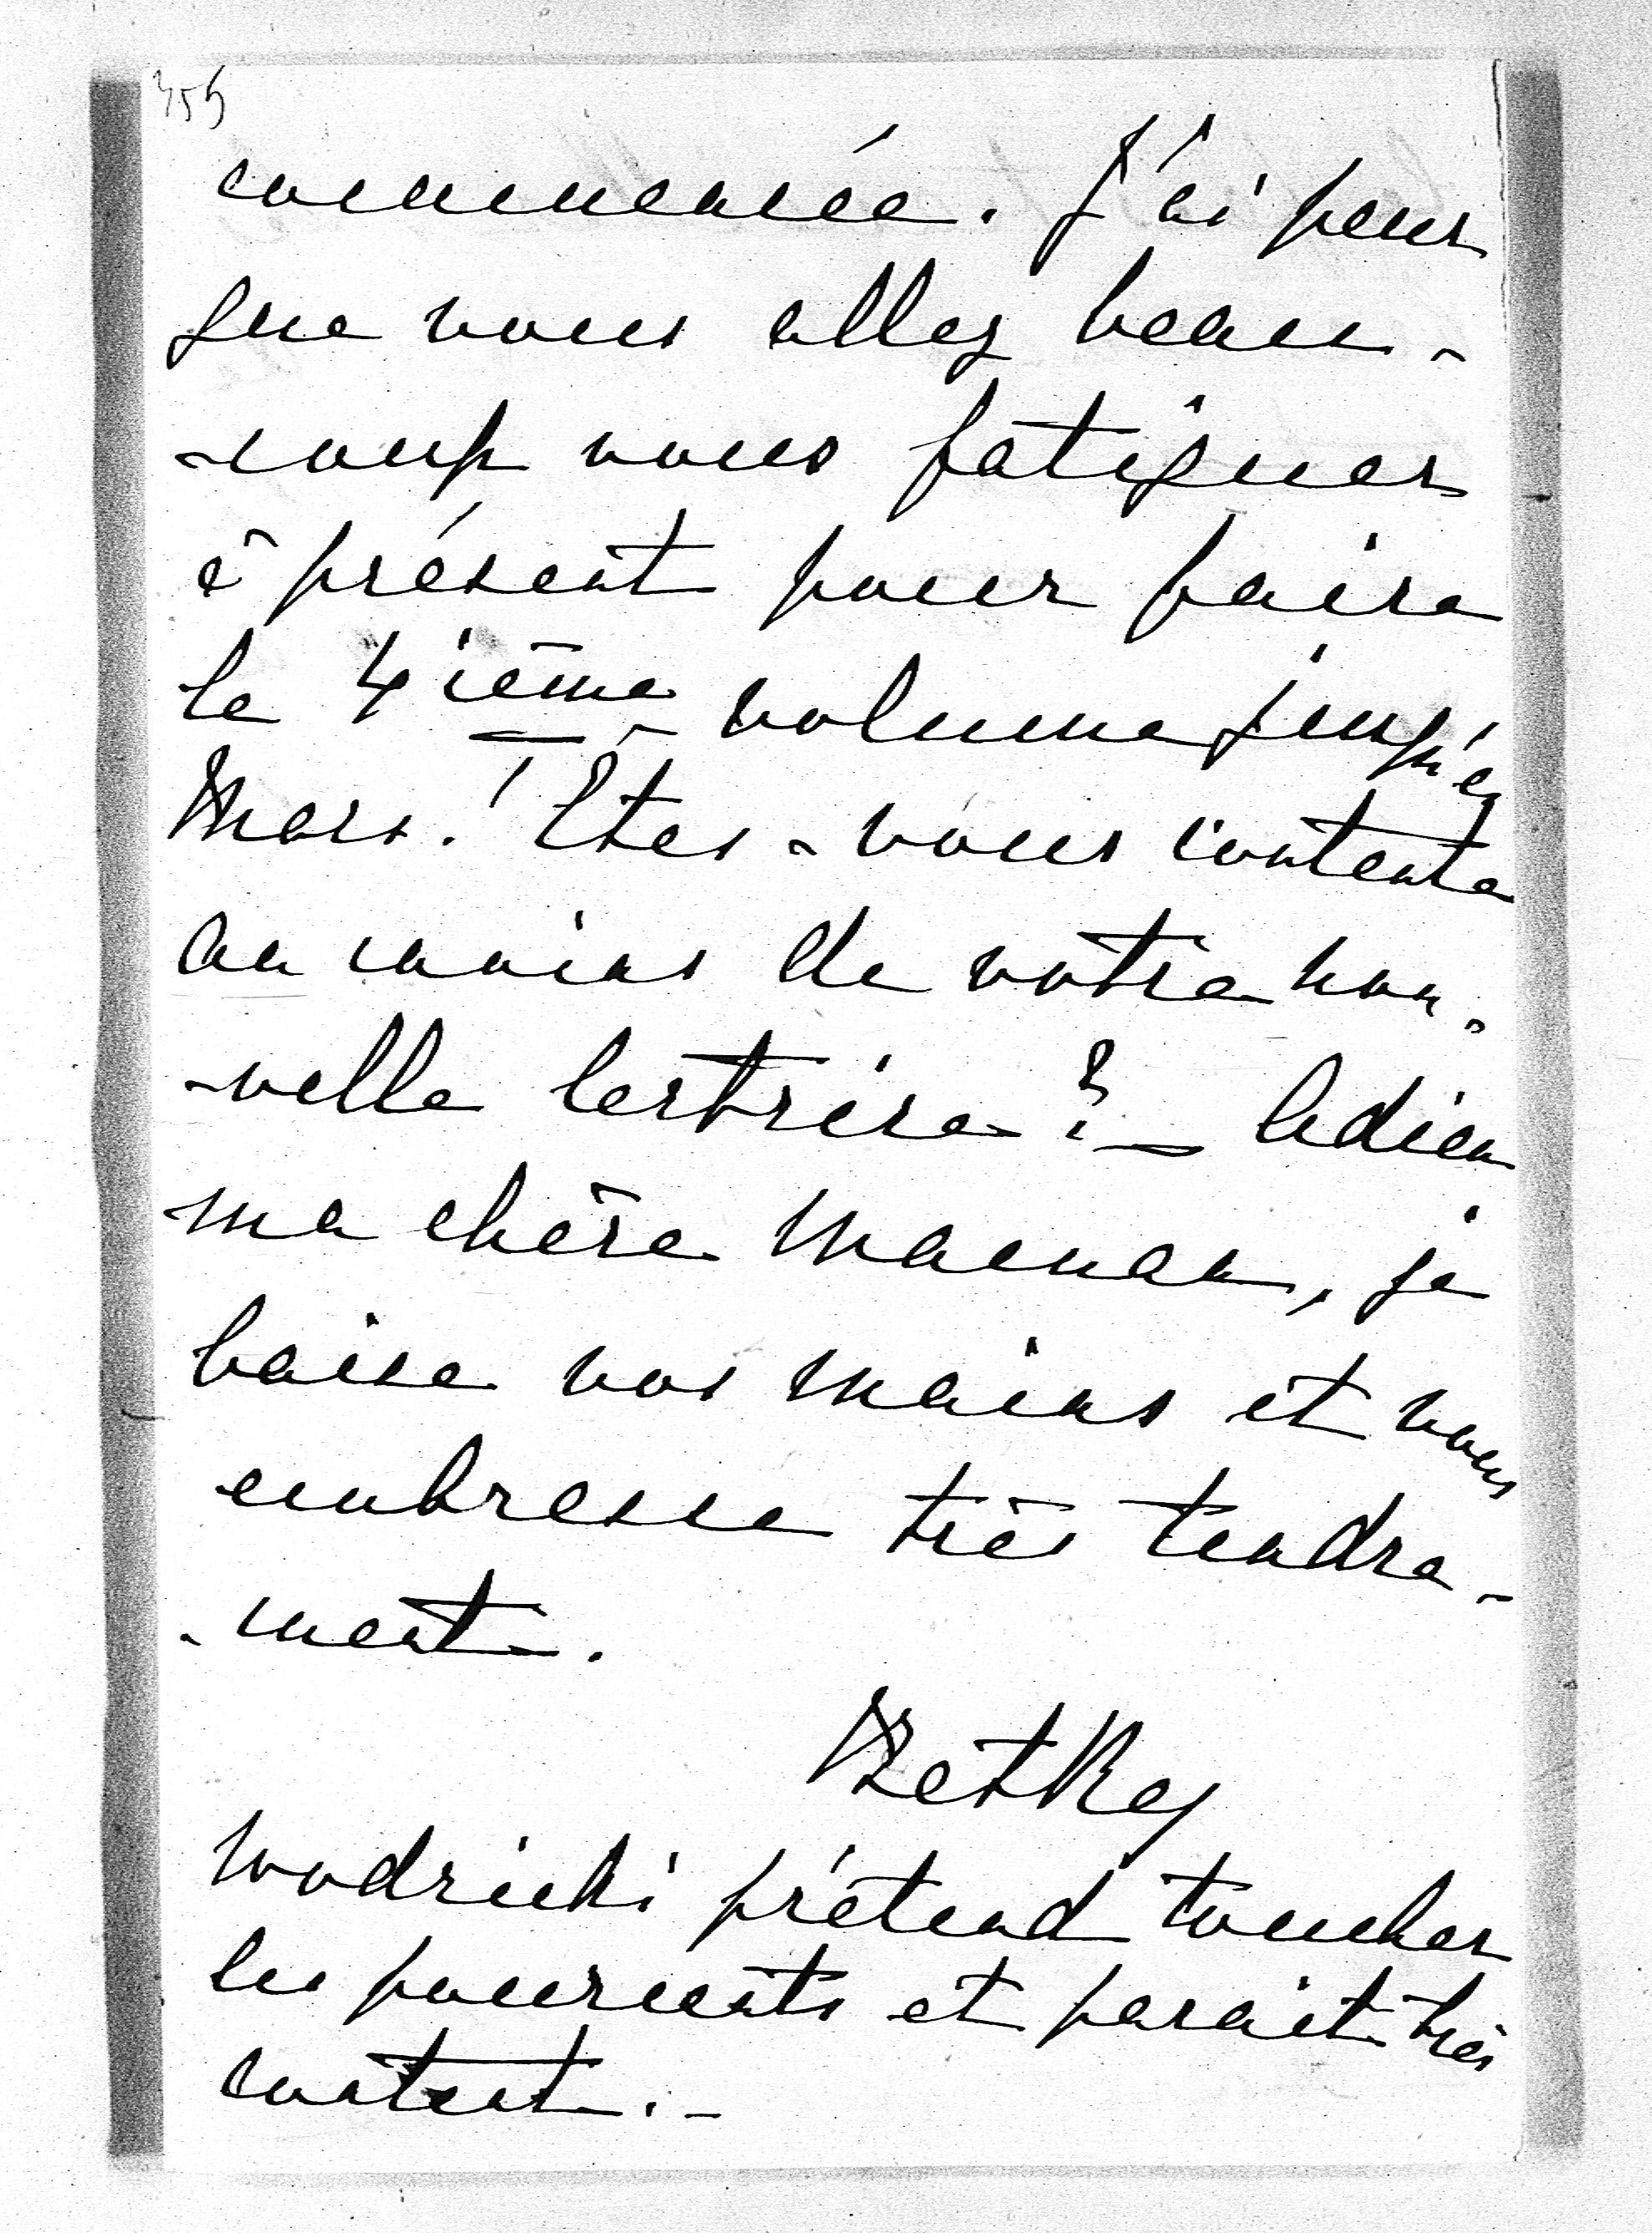 commencée. J'ai peur
que vous allez beau-
-coup vous fatiguer
à présent pour faire
le 4ième volume jusqu'en
Mars! Etes-vous contente
au moins de votre nou-
-velle lectrice? — Adieu
ma chère Maman, je
baise vos mains et vous
embrasse très tendre-
-ment.
Betky
Wodzicki prétend toucher
les pourcents et parait très
content. -